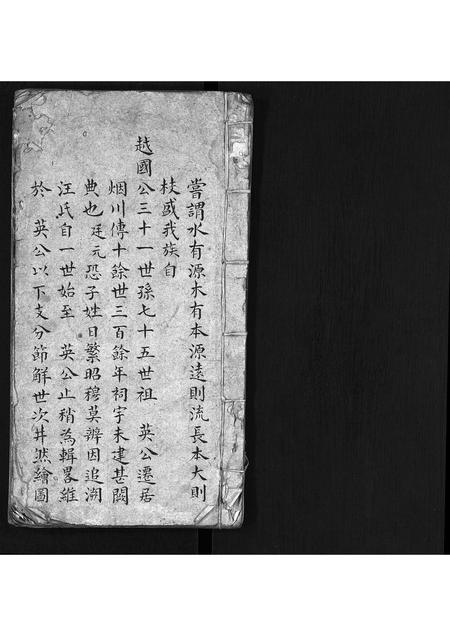 嘗謂水有源木有本源遠則流長本大則
枝盛我族自
越國公三十一世孫七十五世祖　英公遷居
烟川傳十餘世三百餘年祠宇未建甚闕
典也廷元恐子姓日繁昭穆莫辨因追溯
汪氏自一世始至　英公止稍為輯畧維
於　英公以下支分節解世次井然繪圖